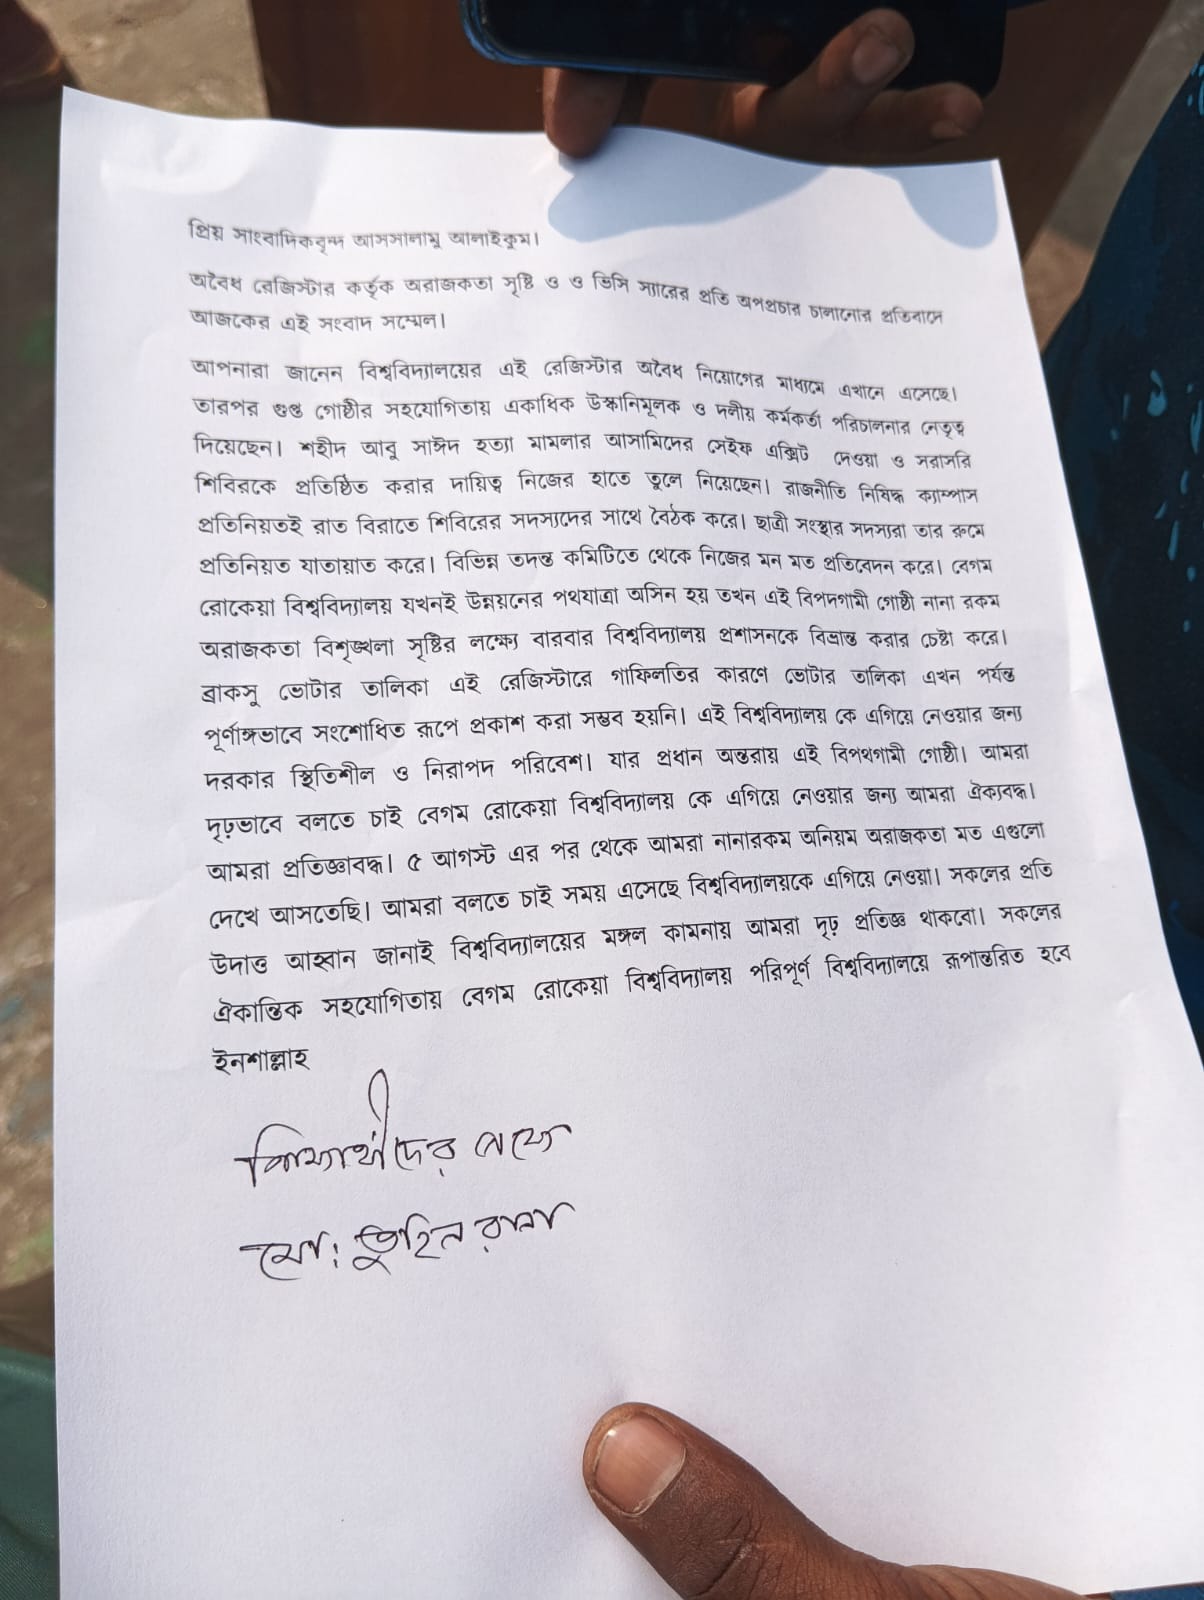 প্রিয় সাংবাদিকবৃন্দ আসসালামু আলাইকুম।
অবৈধ রেজিস্টার কর্তৃক অরাজকতা সৃষ্টি ও ও ভিসি স্যারের প্রতি অপপ্রচার চালানোর প্রতিবাদে
আজকের এই সংবাদ সম্মেল।
আপনারা জানেন বিশ্ববিদ্যালয়ের এই রেজিস্টার অবৈধ নিয়োগের মাধ্যমে এখানে এসেছে।
তারপর গুপ্ত গোষ্ঠীর সহযোগিতায় একাধিক উস্কানিমূলক ও দলীয় কর্মকর্তা পরিচালনার নেতৃত্ব
দিয়েছেন। শহীদ আবু সাঈদ হত্যা মামলার আসামিদের সেইফ এক্সিট দেওয়া ও সরাসরি
শিবিরকে প্রতিষ্ঠিত করার দায়িত্ব নিজের হাতে তুলে নিয়েছেন। রাজনীতি নিষিদ্ধ ক্যাম্পাস
প্রতিনিয়তই রাত বিরাতে শিবিরের সদস্যদের সাথে বৈঠক করে। ছাত্রী সংস্থার সদস্যরা তার রুমে
প্রতিনিয়ত যাতায়াত করে। বিভিন্ন তদন্ত কমিটিতে থেকে নিজের মন মত প্রতিবেদন করে। বেগম
রোকেয়া বিশ্ববিদ্যালয় যখনই উন্নয়নের পথযাত্রা অসিন হয় তখন এই বিপদগামী গোষ্ঠী নানা রকম
অরাজকতা বিশৃঙ্খলা সৃষ্টির লক্ষ্যে বারবার বিশ্ববিদ্যালয় প্রশাসনকে বিভ্রান্ত করার চেষ্টা করে।
ব্রাকসু ভোটার তালিকা এই রেজিস্টারে গাফিলতির কারণে ভোটার তালিকা এখন পর্যন্ত
পূর্ণাঙ্গভাবে সংশোধিত রূপে প্রকাশ করা সম্ভব হয়নি। এই বিশ্ববিদ্যালয় কে এগিয়ে নেওয়ার জন্য
দরকার স্থিতিশীল ও নিরাপদ পরিবেশ। যার প্রধান অন্তরায় এই বিপথগামী গোষ্ঠী। আমরা
দৃঢ়ভাবে বলতে চাই বেগম রোকেয়া বিশ্ববিদ্যালয় কে এগিয়ে নেওয়ার জন্য আমরা ঐক্যবদ্ধ।
আমরা প্রতিজ্ঞাবদ্ধ। ৫ আগস্ট এর পর থেকে আমরা নানারকম অনিয়ম অরাজকতা মত এগুলো
দেখে আসতেছি। আমরা বলতে চাই সময় এসেছে বিশ্ববিদ্যালয়কে এগিয়ে নেওয়া। সকলের প্রতি
উদাত্ত আহ্বান জানাই বিশ্ববিদ্যালয়ের মঙ্গল কামনায় আমরা দৃঢ় প্রতিজ্ঞ থাকবো। সকলের
ঐকান্তিক সহযোগিতায় বেগম রোকেয়া বিশ্ববিদ্যালয় পরিপূর্ণ বিশ্ববিদ্যালয়ে রূপান্তরিত হবে
ইনশাল্লাহ
শিক্ষার্থীদের পক্ষে
মো: তুহিন রানা